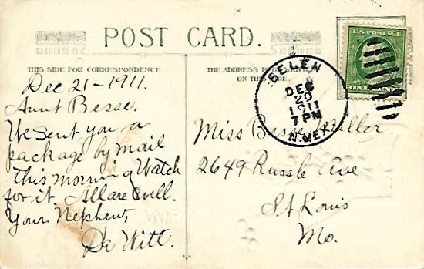 POST CARD.
THIS SIDE FOR CORRESPONDENCE
THE ADDRESS
ON THIS
Dec 21-1911.
Aunt Besse.
We sent you a
package by mail
this morning Watch
for it. All are well.
Your Nephew,
De Witt.
BELEN
DEC
20
1911
7 PM
N. MEX.
Miss Bessie Miller
2649 Russle Ave
St Louis
Mo.